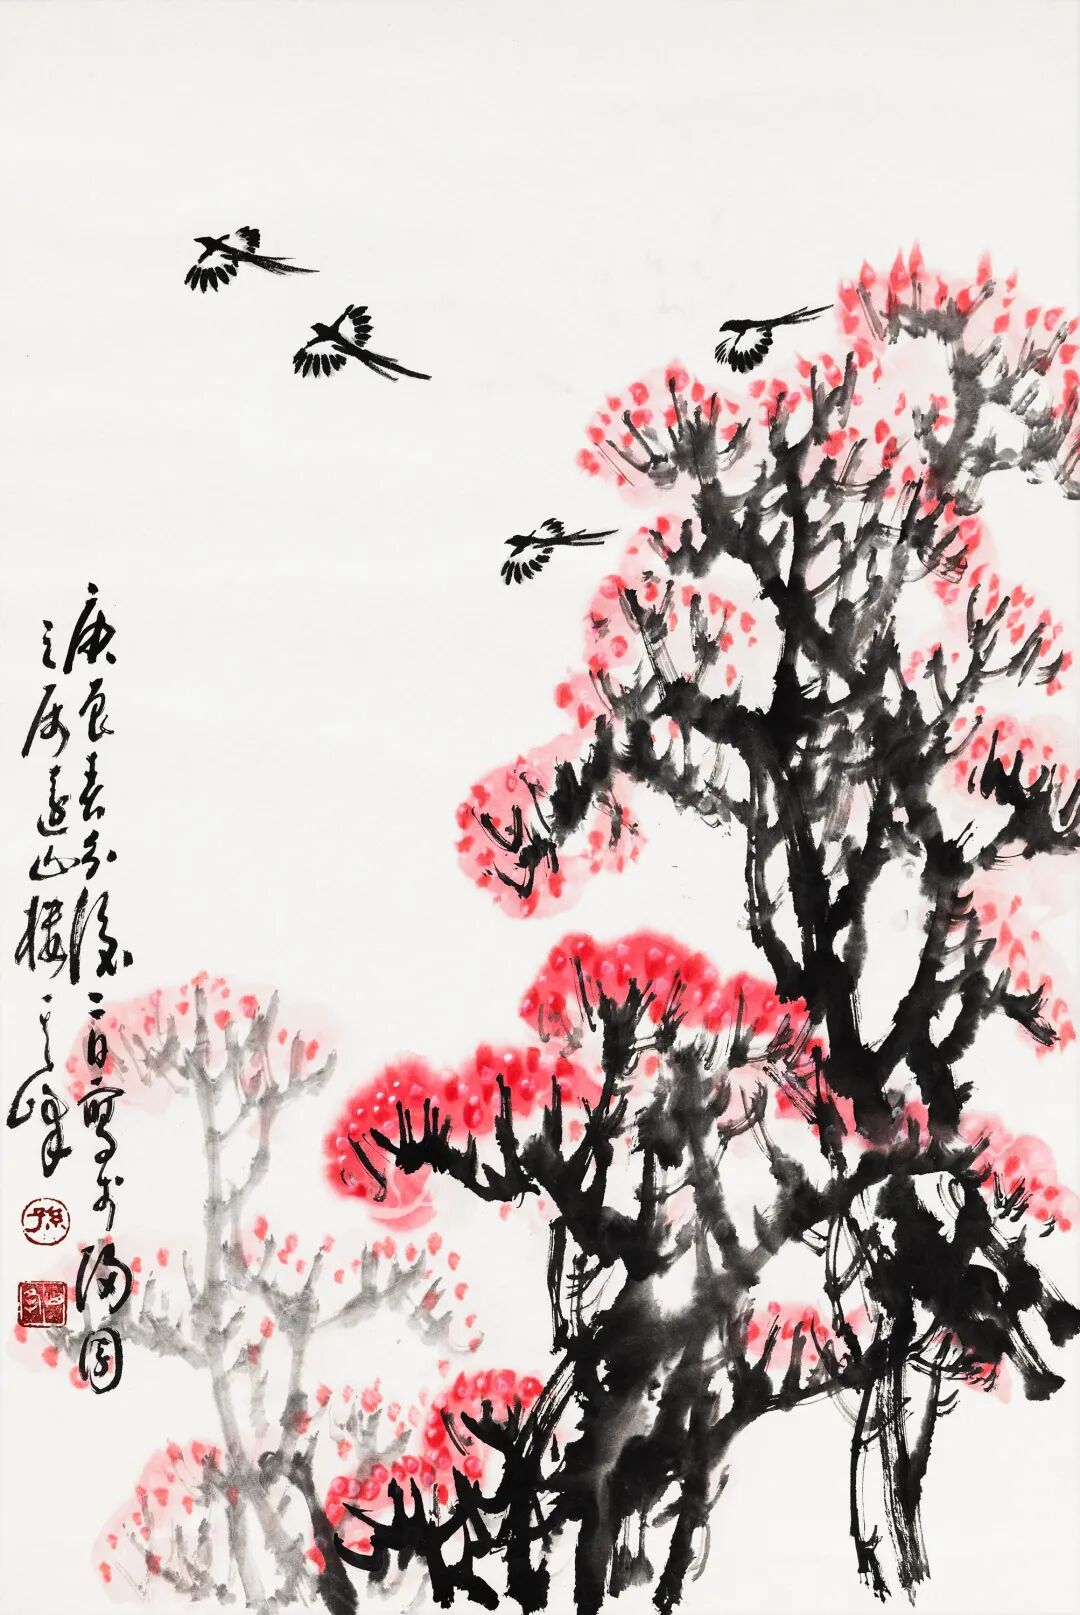 庚辰春分後二日寫於園
之遠山樓其峰
孫